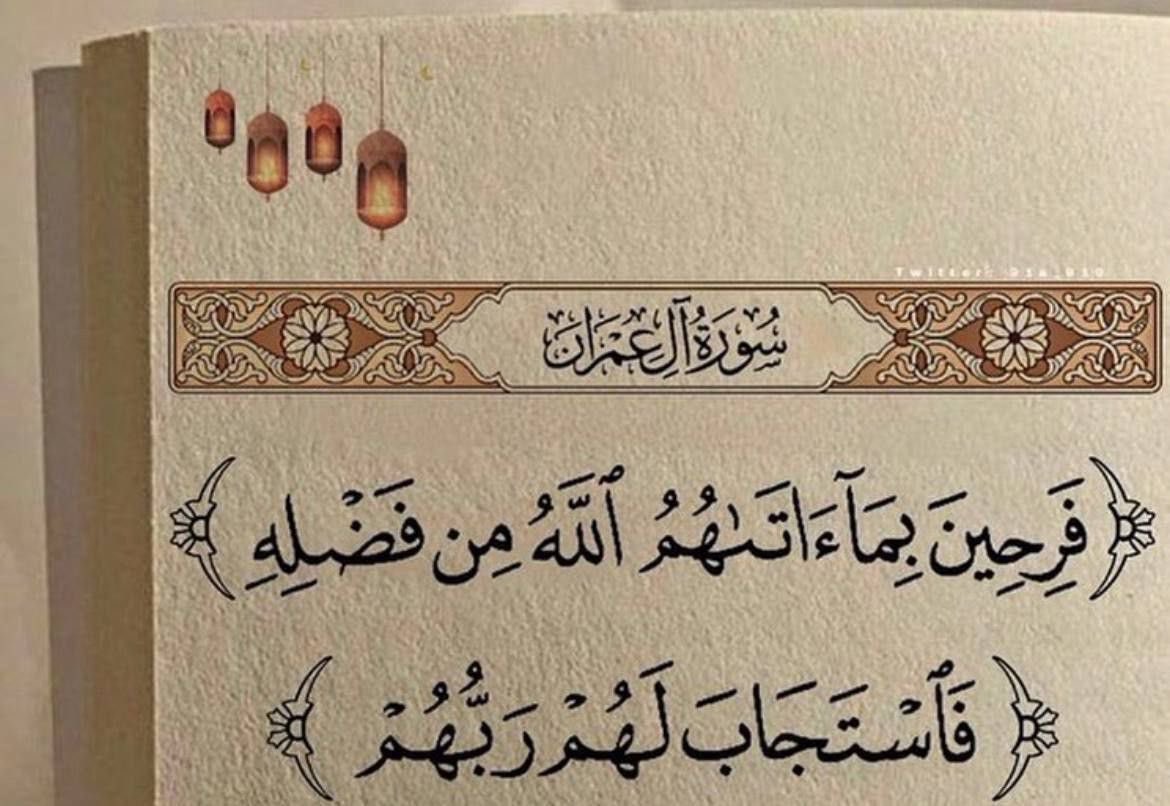 Twitter:
سُورَةُ آلِ عِمْرَانَ
﴿فَرِحِينَ بِمَآ ءَاتَىٰهُمُ ٱللَّهُ مِن فَضْلِهِ﴾
﴿فَٱسْتَجَابَ لَهُمْ رَبُّهُمْ﴾